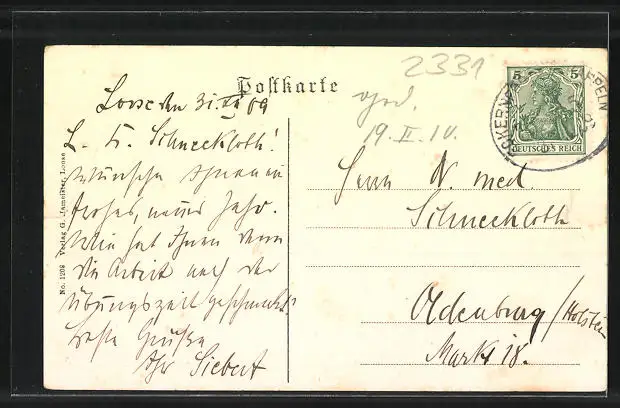 Postkarte
2331
Loose den 31. XII 09
L. H. Schneekloth!
Wünsche Ihnen ein
frohes, neues Jahr.
Wie hat Ihnen denn
die Arbeit nach der
Übungszeit geschmeckt?
Beste Grüße
Ihr Siebert
No. 1208 Verlag G. Loose
19. II. 10.
5 5
DEUTSCHES REICH
Herrn Dr. med.
Schneekloth
Oldenburg/Holstein
Markt 18.